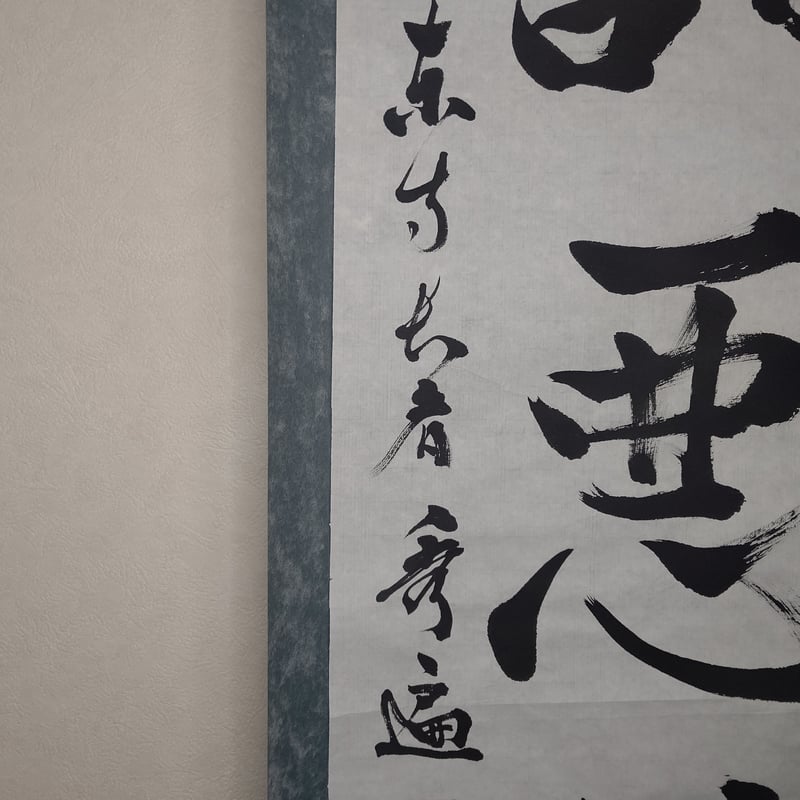 悪
東寺長者秀遍